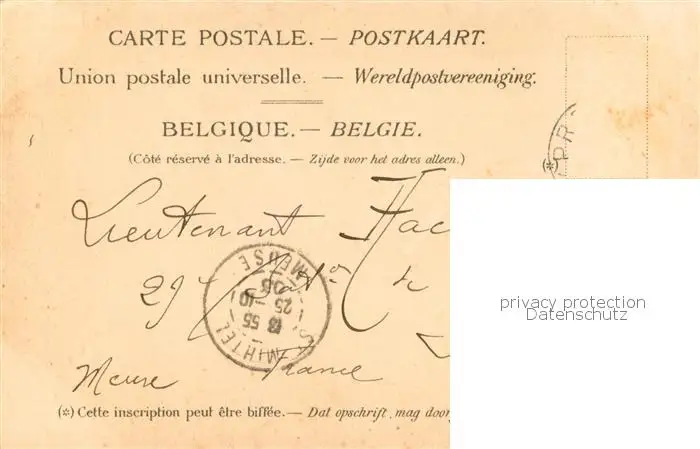 CARTE POSTALE. — POSTKAART.
Union postale universelle. — Wereldpostvereeniging.
BELGIQUE. — BELGIE.
(Côté réservé à l'adresse. — Zijde voor het adres alleen.)
(*) PR
Lieutenant Hac
29e
ST MIHIEL
MEUSE
Meuse France
(*) Cette inscription peut être biffée. — Dat opschrift, mag door
privacy protection
Datenschutz